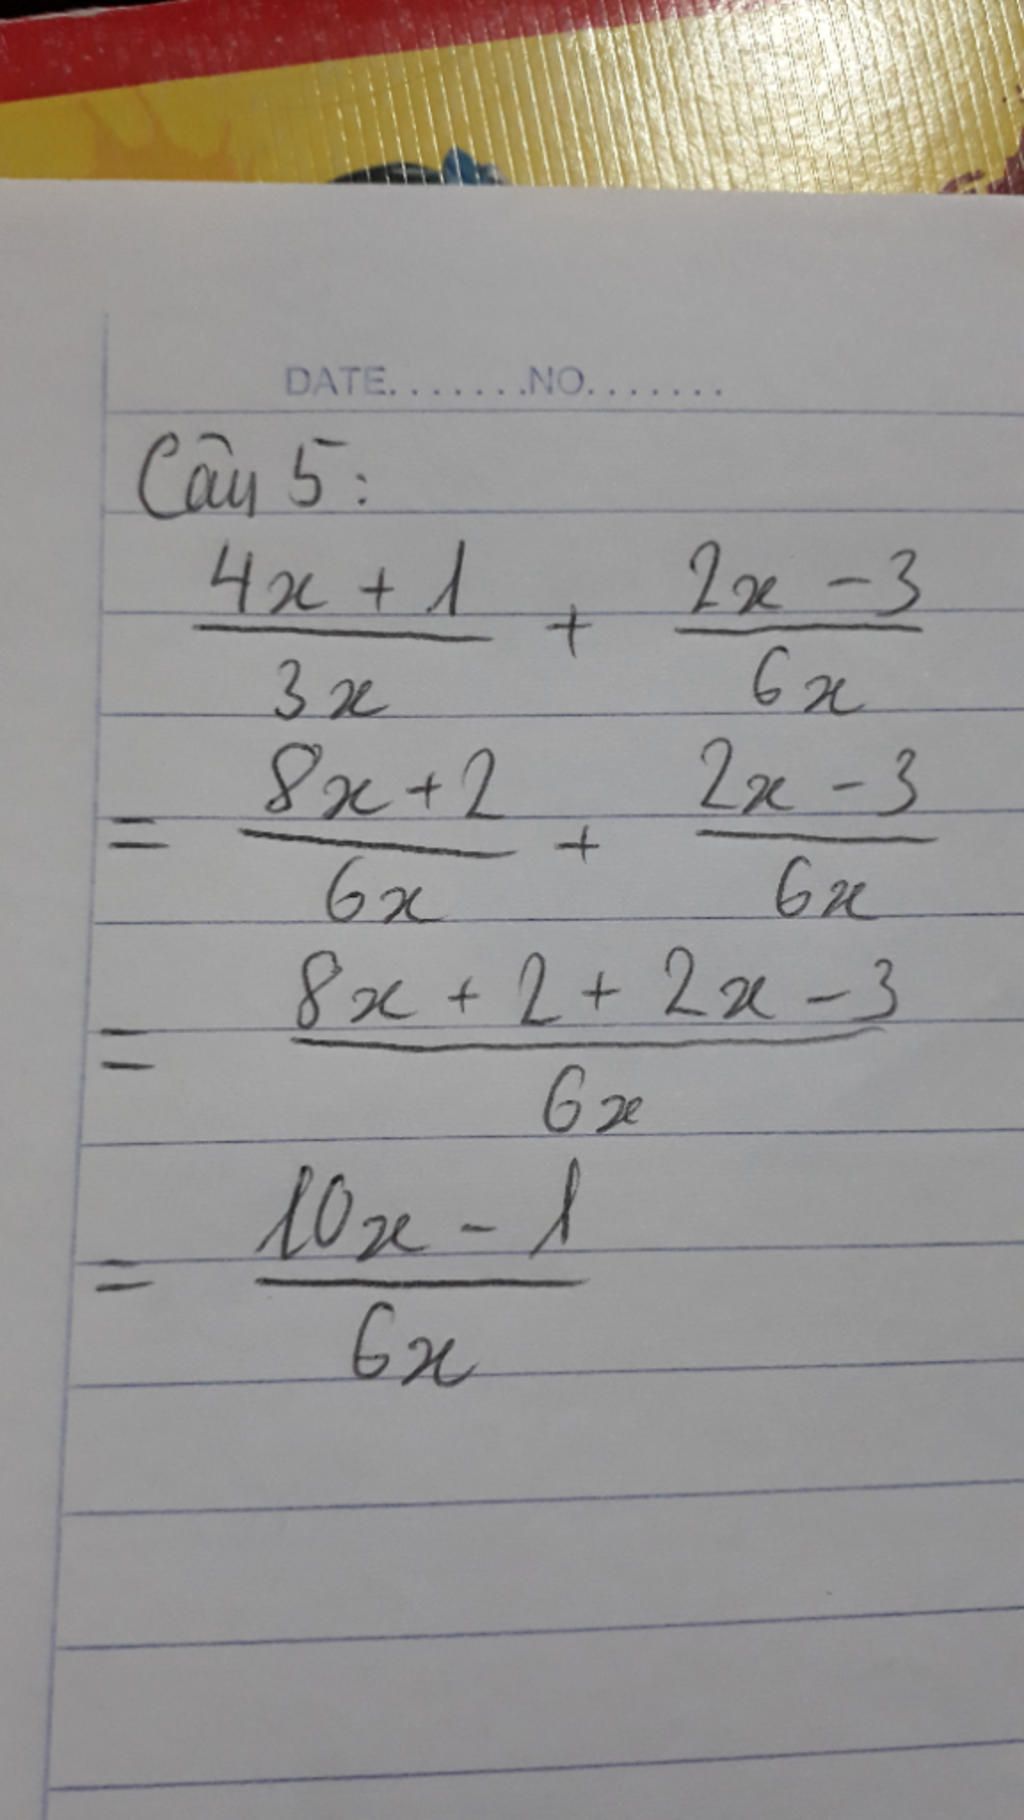 DATE.......NO.......
Câu 5:
4x + 1 / 3x + 2x - 3 / 6x
= 8x + 2 / 6x + 2x - 3 / 6x
= 8x + 2 + 2x - 3 / 6x
= 10x - 1 / 6x